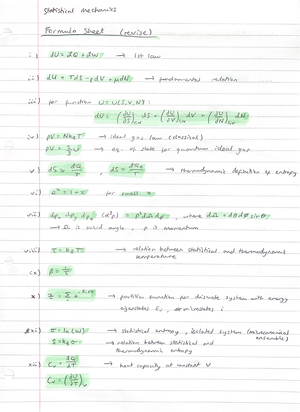 Statistical Mechanics
Formula Sheet (revise)
i) dU = dQ + dW → 1st law
ii) dU = TdS - pdV + μdN → fundamental relation
iii) for function U = U(S,V,N):
dU = (∂U/∂S)V,N dS + (∂U/∂V)S,N dV + (∂U/∂N)S,V dN
iv) pV = NkBT → ideal gas law (classical)
pV = 2/3 U → eq. of state for quantum ideal gas
v) dS ≥ dQ/T , dS = dQR/T → thermodynamic definition of entropy
vi) e^x ≈ 1+x for small x
vii) dpx dpy dpz (d³p) = p²dΩdp , where dΩ = dθdφ sinθ
→ Ω is solid angle , p is momentum
viii) τ = kBT → relation between statistical and thermodynamic
temperature
ix) β = 1/τ
x) Z = Σ e^-Ei/τ → partition function for discrete system with energy
eigenstates Ei , or microstates i
xi) σ = ln(W) → statistical entropy, isolated system (microcanonical
ensemble)
S = kBσ → relation between statistical and
thermodynamic entropy
xii) Cv = dQ/dT → heat capacity at constant V
Cv = (∂U/∂T)V